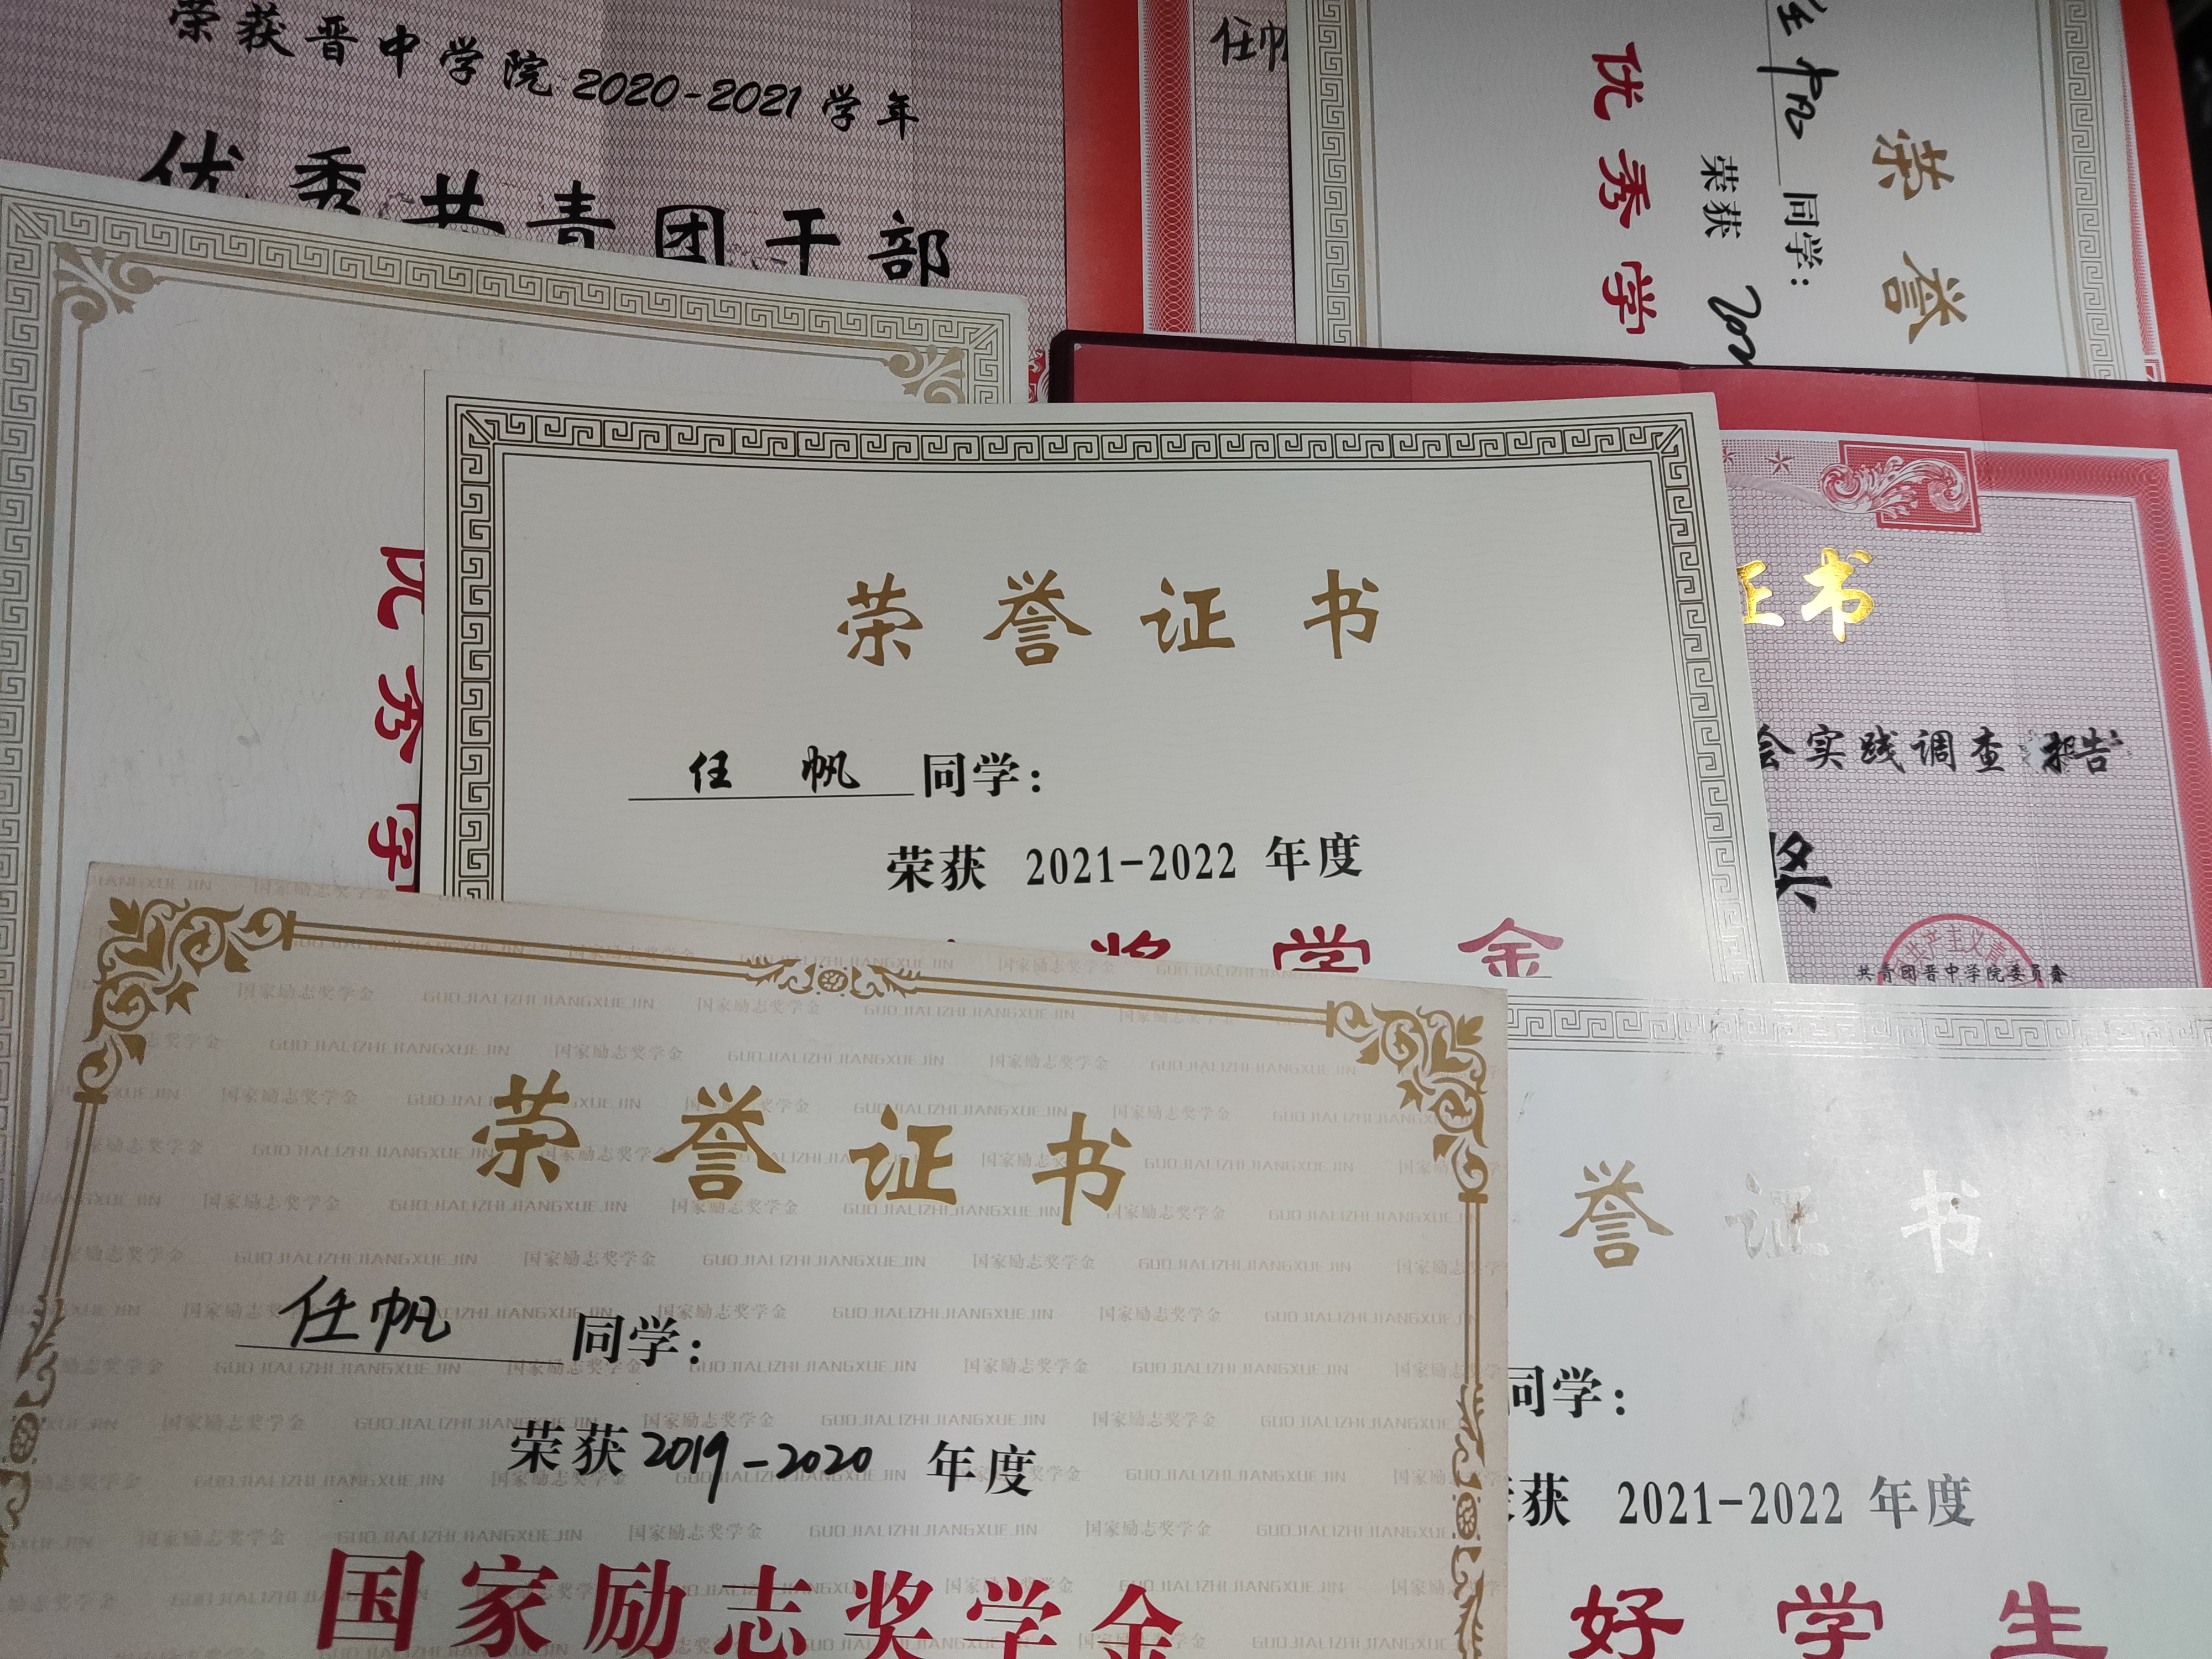 荣获晋中学院2020-2021学年
优秀共青团干部
任帆
荣誉
同学:
荣获
优秀学
荣誉证书
任帆同学:
荣获 2021-2022 年度
奖学金
优秀学
证书
会实践调查报告
奖
共青团晋中学院委员会
荣誉证书
任帆 同学:
荣获2019-2020 年度
国家励志奖学金
誉证书
同学:
获 2021-2022 年度
好学生
国家励志奖学金 GUO JIA LI ZHI JIANG XUE JIN